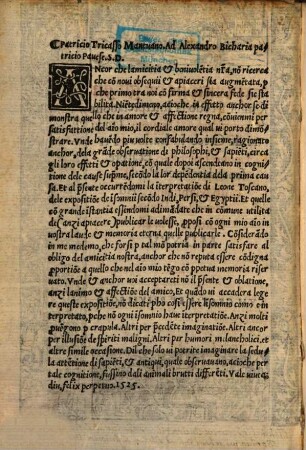 Patricio Tricasso Mantuano. Ad Alexandro Bicharia pa
tricio Pauese. S. D.
ANcor che lamicitia & beniuolētia nr̄a, nō ricerca
che cō noui obsequii & apiaceri sia augmētata, p̄
che primo tra noi cō firma & sincera fede sie sta
bilita. Niētedimeno, acioche in effatto anchor se di
monstra quello che in amore & affectione regna, cōuienni per
satisfattione del aio mio, il cordiale amore qual ui porto dimo
strare. Vnde hauēdo piu uolte confabulando insieme, ragionato
anchor, dela grāde obseruatione di philosophi, & sapiēti, circa
gli loro effetti & opatione, cō quale dopoi ascendeano in cognitio
ne dele cause supme, secōdo la lor depēdentia dela prima cau
sa. Et al p̄sente occorrēdomi la iterpretatiōe di Leone Toscano,
dele expositiōe de insomnii secōdo Indi, Persi, & Egyptii. Et quelle
cō grande istantia essēdomi adimādate che in comune utilita
de
piacere publicar le uolesse, p̄posi cō ogni mio aio in
uostra laude & memoria eterna quelle publicarle. Cōsiderādo
in me medemo, che forsi p tal mō potria in parte satisfare al
obligo del amicitia nostra, anchor che nō reputa essere cōdigna
p̄portiōe a quello che nel aio mio tēgo cō ppetua memoria riser
uato. Vnde & anchor uoi acceptareti nō il p̄sente & oblatione,
anzi lanimo & affectione del amico, Et quādo ui accadera lege
re queste expositiōe, nō dicati pho cosi essere lisomnio como e in
terpretato, pche nō ogni isomnio haue iterpretatione. Anzi molti
puēgono p crapula. Altri per p̄cedēte imaginatiōe. Altri ancor
per illusiōe de spiriti maligni. Altri per humori melancholici, et
altre simile occasione. Dil che solo ui potrite imaginare la sedu
la attētione di sapiēti, & antiqui, quale obseruauano, acioche per
tale cognitione, fussino dali animali brutti differēti. Vale uiue au
diu, felix perpetuo. 1525.